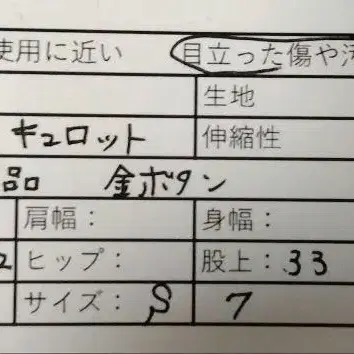 使用に近い 目立った傷や汚
生地
キュロット 伸縮性
品 金ボタン
肩幅： 身幅：
2 ヒップ： 股上：33
サイズ：S 7